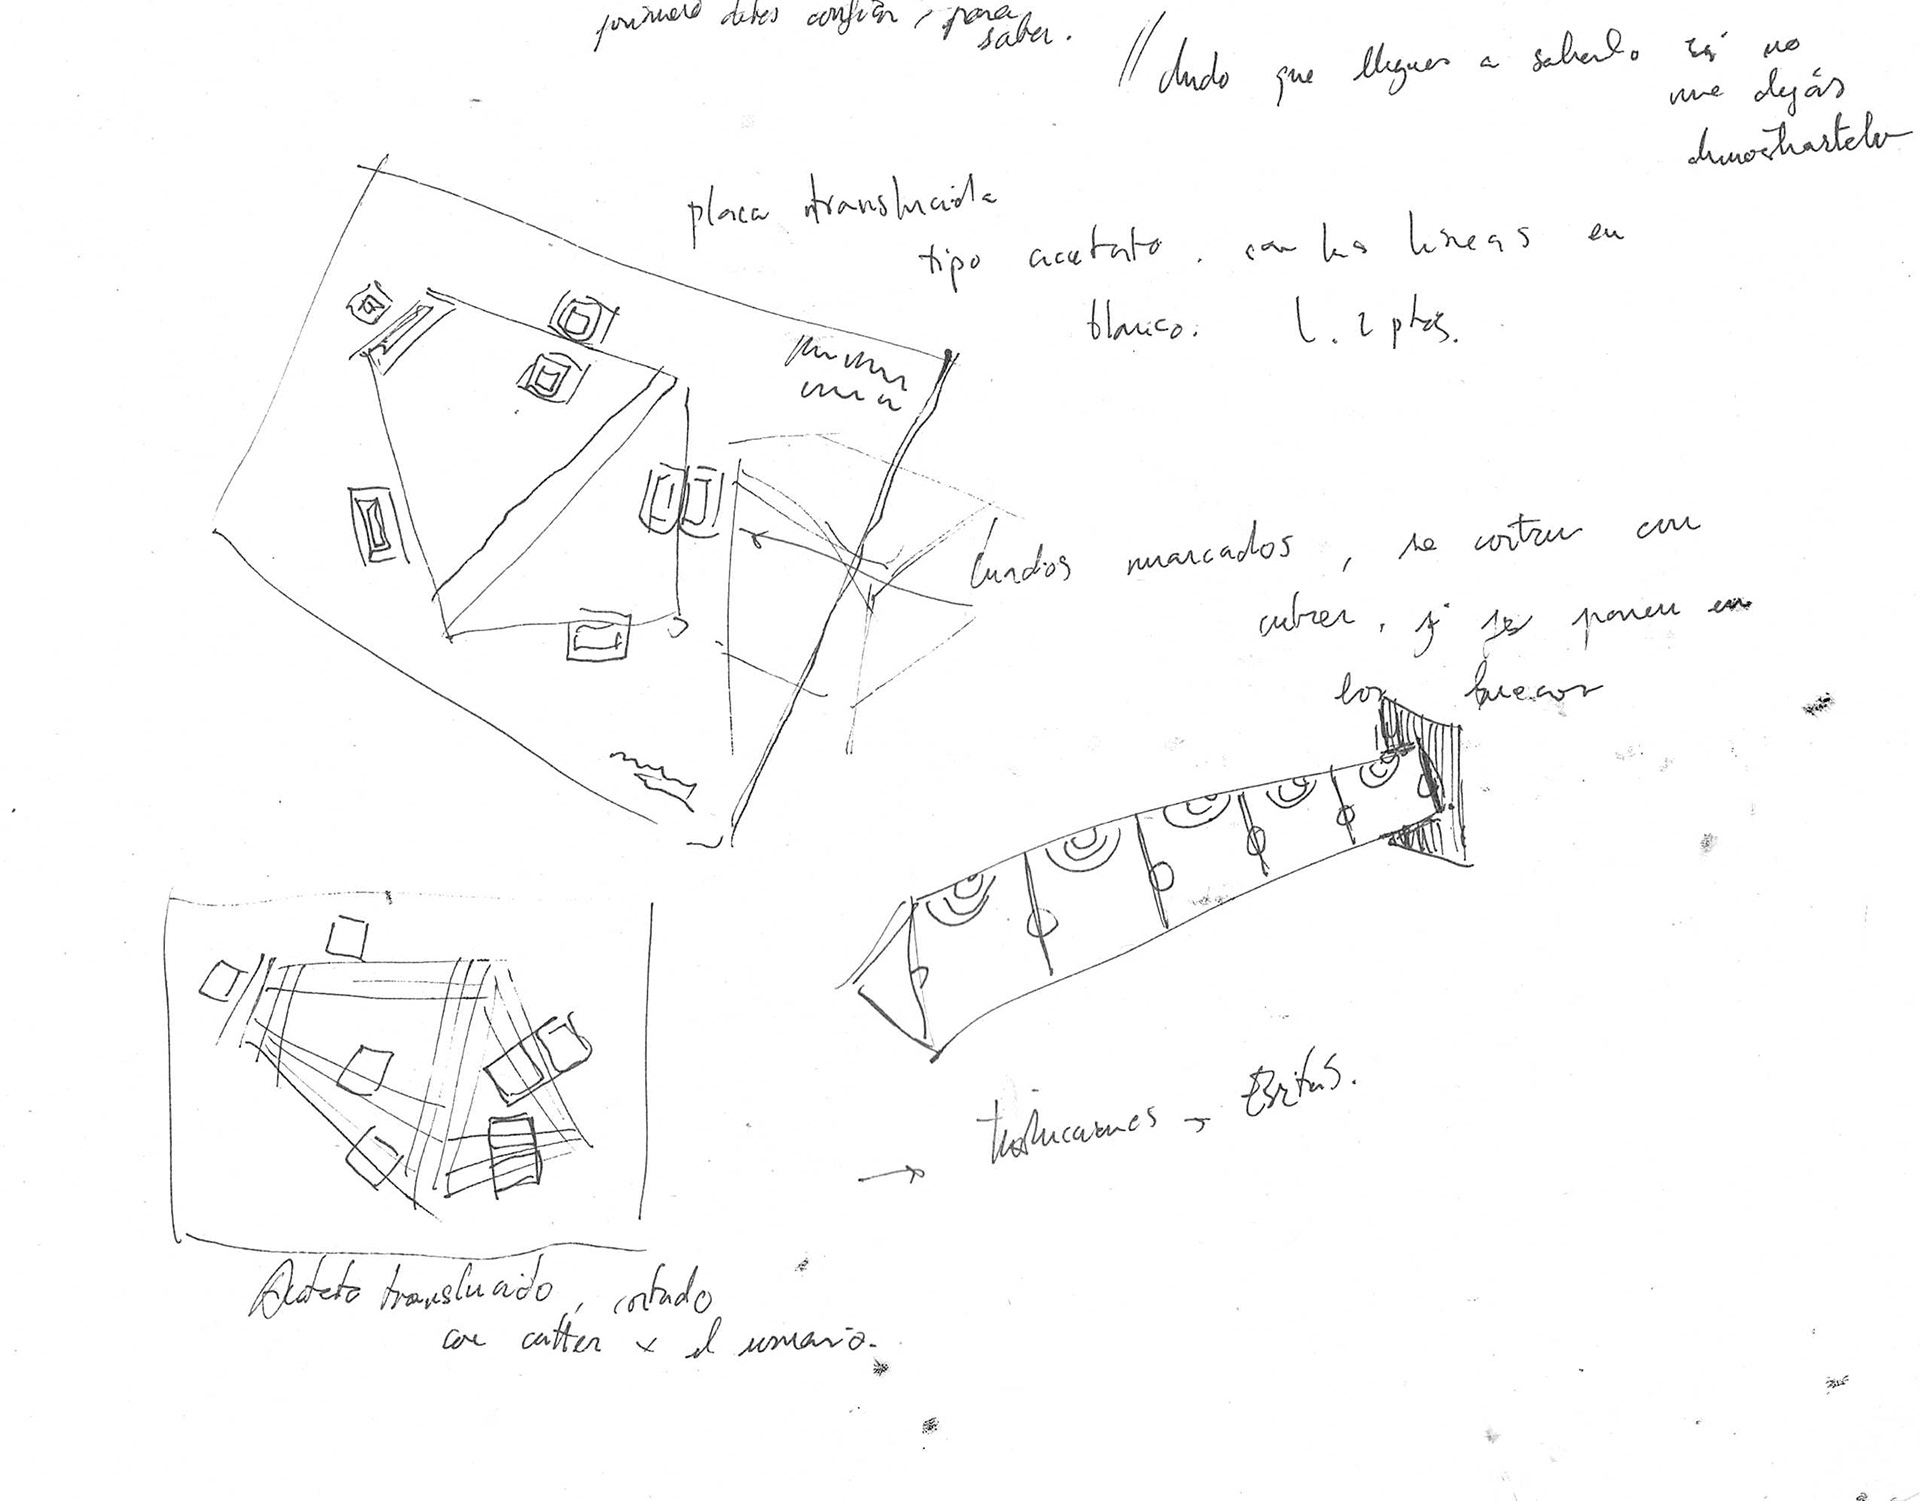 primero debes confiar, para
saber.
// dudo que llegues a saberlo si no
me dejás
demostrartelo
placa translucida
tipo acetato. con las lineas en
blanco. 1.2 ptos.
marcados, se cortan con
cutter, y se ponen en
los huecos
→ 
Acetato translucido, cortado
con cutter x el usuario.